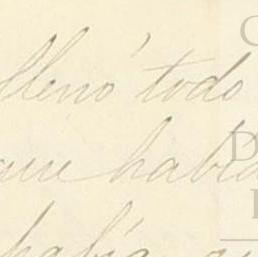 llenó todo
que había
había